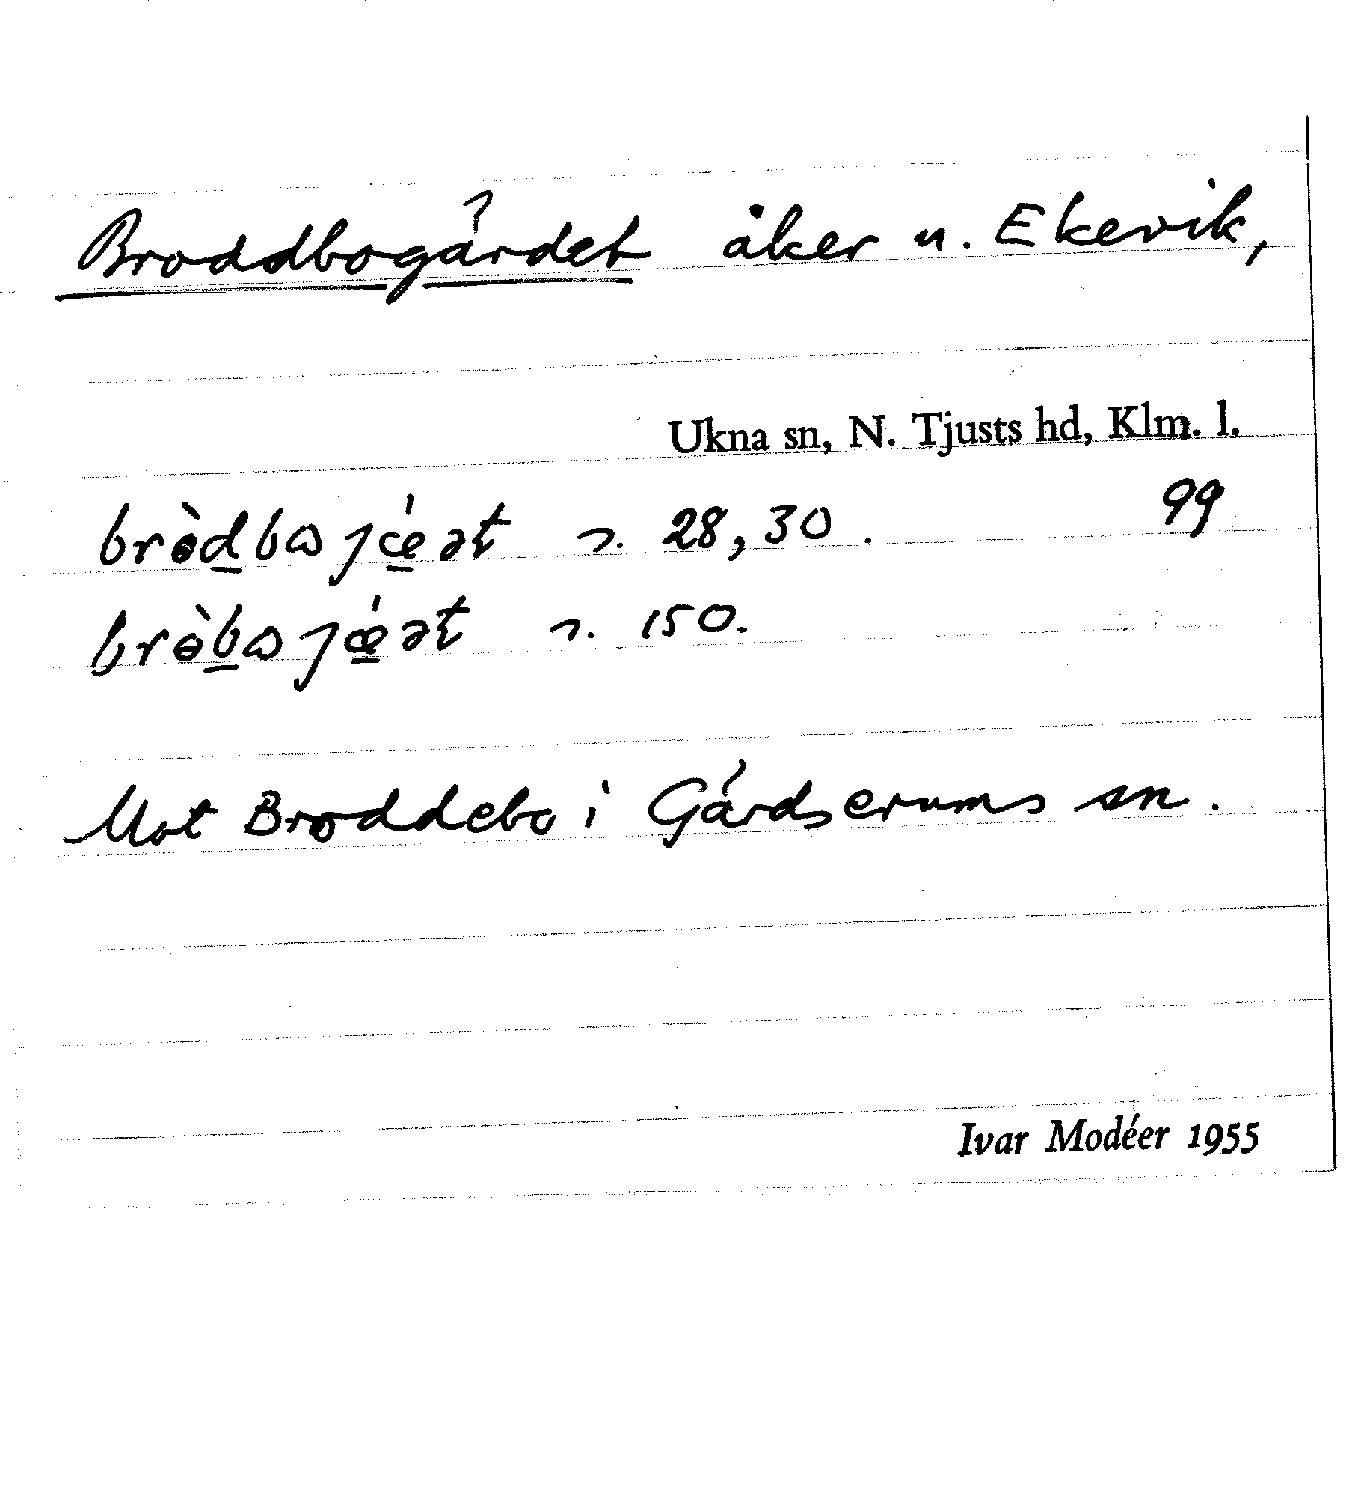 Broddbogärdet åker u. Ekevik,
Ukna sn, N. Tjusts hd, Klm. l.
brɵ̀d̲bɷȷœ̲́ət s. 28, 30. 99
brɵ̀b̲ɷȷœ̲́ət s. 150.
Mot Broddebo i Gärdserums sn.
Ivar Modéer 1955